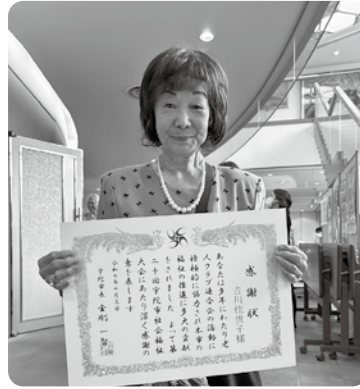 感謝状
吉川佳世子様
あなたは多年にわたり老
人クラブ連合会の活動に
積極的に協力され本市の
福祉の推進に多大の貢献
をされました よって第
二十回宇陀市社会福祉
大会にあたり深く感謝の
意を表します
令和七年十月
宇陀市長 金剛一智